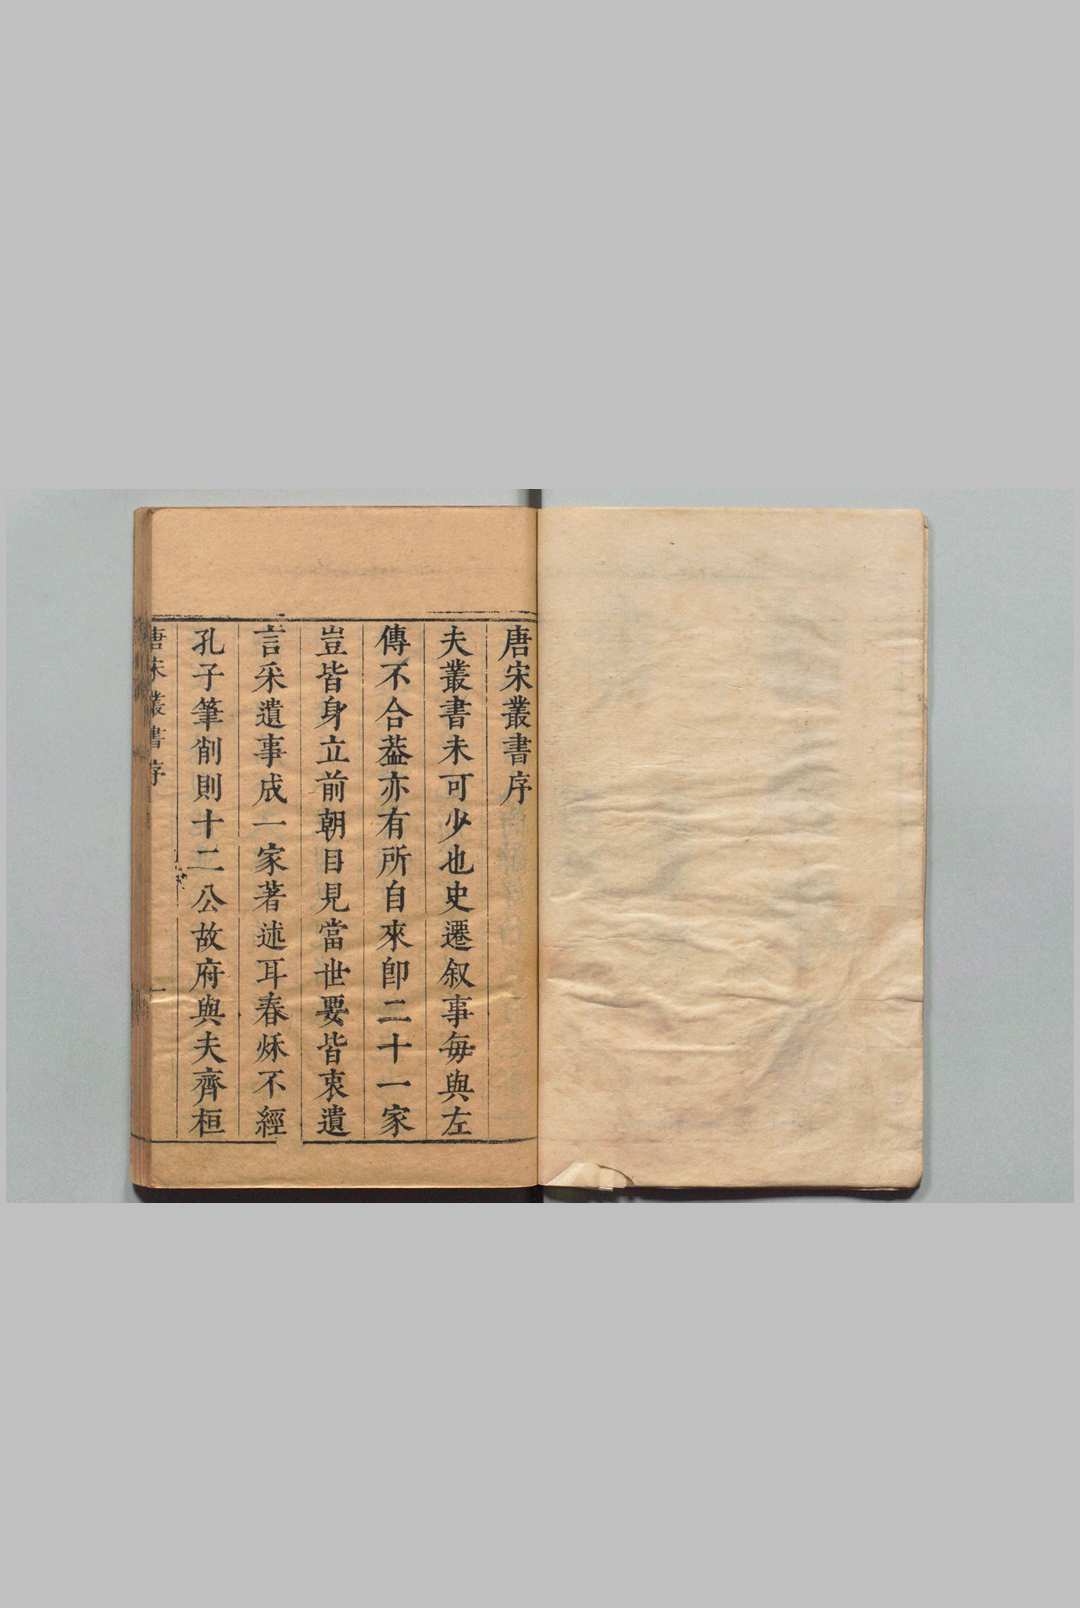 唐宋叢書序
夫叢書未可少也史遷叙事每與左
傳不合葢亦有所自來卽二十一家
豈皆身立前朝目見當世要皆衷遺
言采遺事成一家著述耳春秌不經
孔子筆削則十二公故府與夫齊桓
唐宋叢書序
一